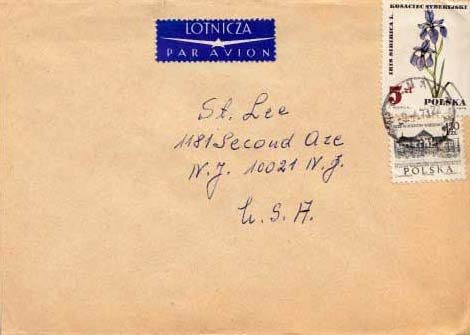 LOTNICZA
PAR AVION
KOSACIEC SYBERYJSKI
IRIS SIBIRICA L.
5 zł
POLSKA
POLSKA
St. Lee
1181 Second Ave
N.J. 10021 N.J.
U.S.A.